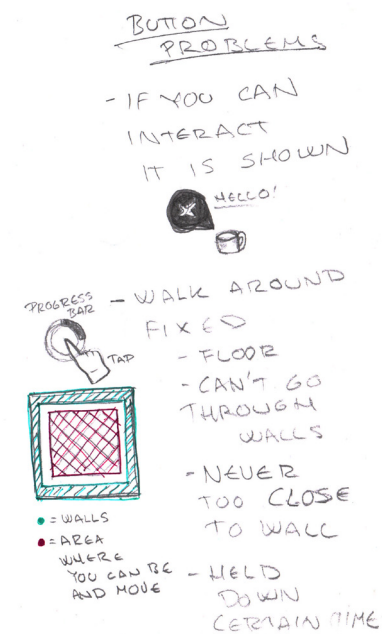 BUTTON
PROBLEMS
- IF YOU CAN
INTERACT
IT IS SHOWN
HELLO!
PROGRESS
BAR
TAP
- WALK AROUND
FIXED
- FLOOR
- CAN'T GO
THROUGH
WALLS
- NEVER
TOO CLOSE
TO WALL
- HELD
DOWN
CERTAIN TIME
= WALLS
= AREA
WHERE
YOU CAN BE
AND MOVE